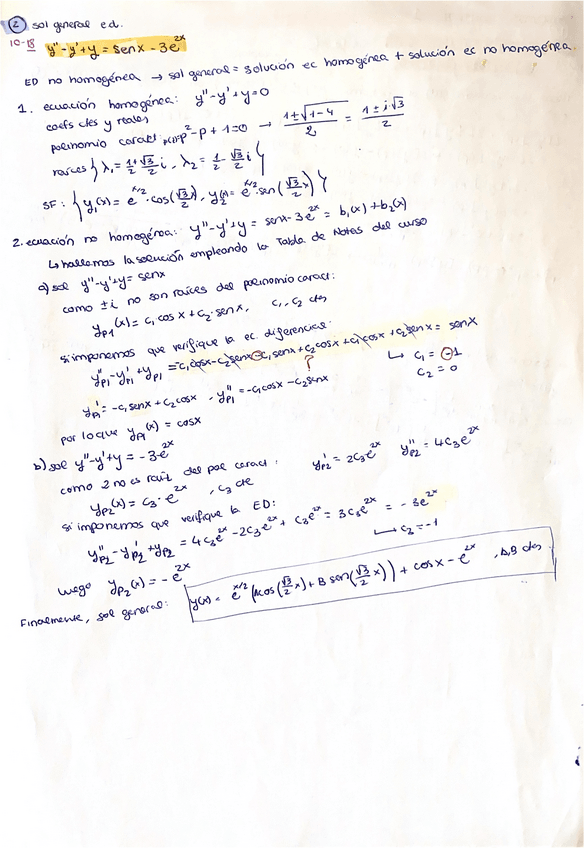 ② sol general e.d.
10-18 y''-y'+y = senx - 3e^{2x}
ED no homogénea → sol general = solución ec homogénea + solución ec no homogénea.
1. ecuación homogénea: y''-y'+y=0
coefs ctes y reales
polinomio caract: p²-p+1=0 → (1±√(1-4))/2 = (1±i√3)/2
raíces { λ₁ = 1/2+√3/2 i, λ₂ = 1/2-√3/2 i }
SF: { y₁(x) = e^{x/2}·cos(√3/2 x), y₂(x) = e^{x/2}·sen(√3/2 x) }
2. ecuación no homogénea: y''-y'+y = senx-3e^{2x} = b₁(x)+b₂(x)
↳ hallamos la solución empleando la Tabla de Notas del curso
a) sol y''-y'+y= senx
como ±i no son raíces del polinomio caract:
y_{p1}(x) = c₁ cosx + c₂·senx, c₁, c₂ ctes
si imponemos que verifique la ec. diferencial:
y''_{p1}-y'_{p1}+y_{p1} = -c₁cosx-c₂senx⊖c₁senx+c₂cosx+c₁cosx+c₂senx = senx
?
↳ c₁ = ⊖1
c₂ = 0
y'_{p1} = -c₁senx+c₂cosx, y''_{p1} = -c₁cosx-c₂senx
por lo que y_{p1}(x) = cosx
b) sol y''-y'+y = -3e^{2x}
como 2 no es raíz del pol caract: y'_{p2} = 2c₃e^{2x} y''_{p2} = 4c₃e^{2x}
y_{p2}(x) = c₃·e^{2x}, c₃ cte
si imponemos que verifique la ED:
y''_{p2}-y'_{p2}+y_{p2} = 4c₃e^{2x}-2c₃e^{2x}+c₃e^{2x} = 3c₃e^{2x} = -3e^{2x}
↳ c₃=-1
luego y_{p2}(x) = -e^{2x}
Finalmente, sol general: y(x) = e^{x/2}(Acos(√3/2 x)+B sen(√3/2 x)) + cosx - e^{2x}, A,B ctes